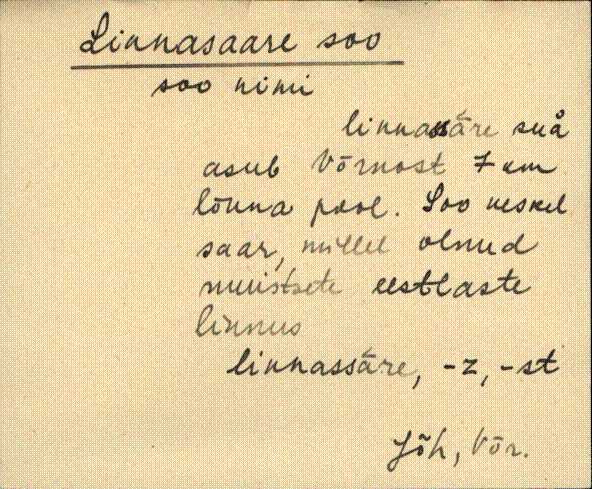 Linnasaare soo
soo nimi
linnassāre suå
asub Võrnost 7 km
lõuna pool. Soo keskel
saar, millel olnud
muistsete eestlaste
linnus
linnassāre, -z, -st
Jõh, Võr.